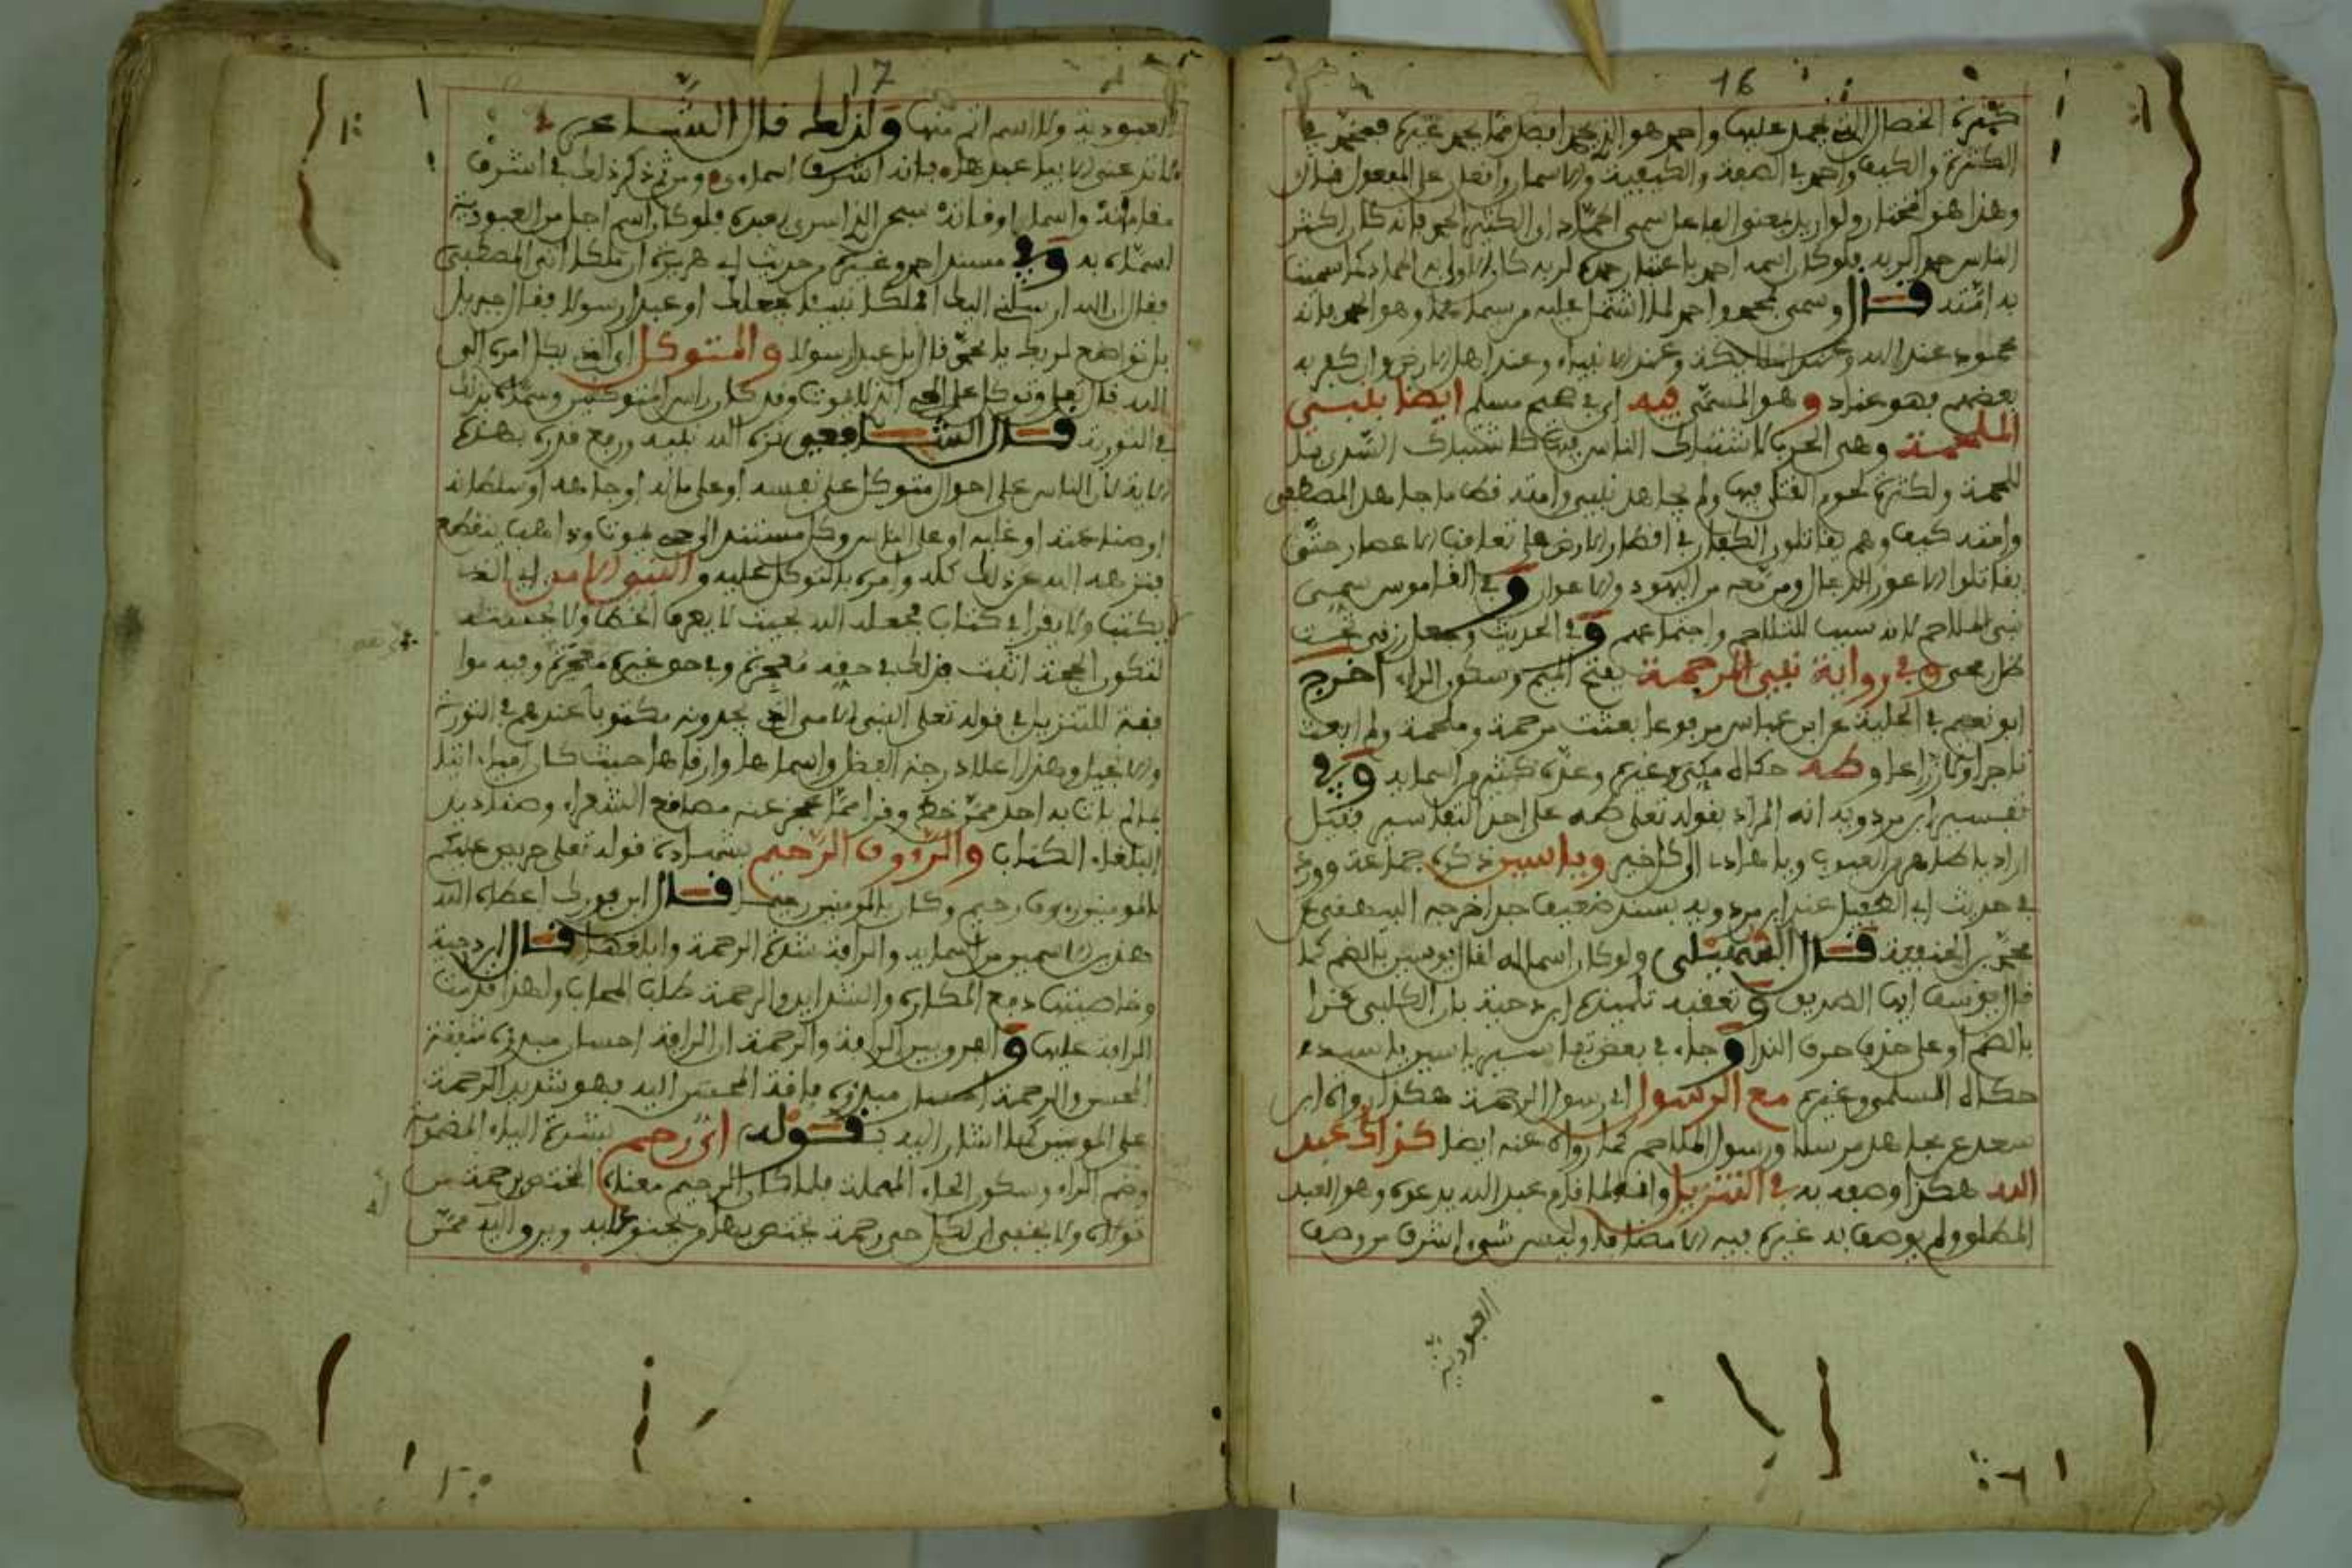 16
كثرة الخصال التي يحمد عليها واحمد هو الذي يحمد افضل مما يحمد غيره فمحمد في
الكثرة والكيف واحمد في الصفة والكيفية والاسمان وافعل على المفعول فبان
وهذا هو المختار ولو اريد معنى الفاعل لسمي الحماد اي الكثير الحمد فانه كان اكثر
الناس حمدا لربه فلو كان اسمه احمد باعتبار حمده لربه كان الاولى به الحماد كما سميت
به امته قال وسمي بمحمد واحمد لما اشتملا عليه من مسماهما وهو الحمد فانه
محمود عند الله وعند الملائكة وعند الانبياء وعند اهل الارض وان كفر به
بعضهم فهو عناد وهو المسمى فيه اي في صحيح مسلم ايضا بنبي
الملحمة وهي الحرب لاشتباك الناس فيها كاشتباك السدى بال
للحمة ولكثرة لحوم القتلى فيها ولم يجاهد نبي وامته قط ما جاهد المصطفى
وامته كيف وهم يقاتلون الكفار في اقطار الارض على تعاقب الاعصار حتى
يقاتلوا الاعور الدجال ومن تبعه من اليهود والاعوان وفي القاموس سمي
نبي الملاحم لانه سبب للتلاحم واجتماعهم وفي الحديث وجعل رزقي تحت
ظل رمحي وفي رواية نبي المرحمة بفتح الميم وسكون الراء اخرج
ابو نعيم في الحلية عن ابن عباس مرفوعا بعثت مرحمة وملحمة ولم ابعث
تاجرا ولا زراعا وطه حكاه مكي وغيره وعده كثير من اسمايه وفي
تفسير ابن مردويه انه المراد بقوله تعلى طه على احد التفاسير فقيل
اراد يا طاهر من العيوب ويا هاديا الى كل خير وياسين ذكره جماعة وورد
في حديث ابي الطفيل عند ابن مردويه بسند ضعيف جدا اخرجه البيهقي عن
محمد بن الحنفية قال السهيلي ولو كان اسما له لقال يوسين بالضم كما
قال يوسف ايها الصديق وتعقبه تلميذه ابن دحية بان الكلبي قرا
بالضم او على حذف حرف النداء وجاء في بعض تفاسير ياسين يا سيد
حكاه السلمي وغيره مع الرسول اي رسول الرحمة هكذا رواه ابن
سعد عن مجاهد مرسلا ورسول الملاحم كما رواه عنه ايضا كذاك عبد
الله هكذا وصفه به في التنزيل وانه لما قام عبد الله يدعوه وهو العبد
المطلق ولم يوصف به غيره فيه الا مضافا وليس شيء اشرف من وصف
العبودية
17
العبودية ولا اسم اتم منها ولذلك قال الشاعر
لا تدعني الا بيا عبدها فانه اشرف اسمائي ومن ثم ذكر ذلك في اشرف
مقاماته واسمى اوقاته سبحن الذي اسرى بعبده فلو كان اسم اجل من العبودية
لسماه به وفي مسند احمد وغيره من حديث ابي هريرة ان ملكا اتى المصطفى
فقال ان الله ارسلني اليك املكا نبيا يجعلك او عبدا رسولا فقال جبريل
بل تواضع لربك يا محمد قال بل عبدا رسولا والمتوكل اي الذي يكل امره الى
الله قال تعلى وتوكل على الحي الذي لا يموت وقد كان راس المتوكلين وسماه بذلك
في التورية قال الشافعي نزه الله نبيه ورفع قدره بهذه
الاية لان الناس على احوال متوكل على نفسه او على ماله او جاهه او سلطانه
او صناعته او غلبه او على الناس وكل مستند الى حي يموت وذاهب ينقطع
فنزهه الله عن ذلك كله وامره بالتوكل عليه والنبي الامي اي الذي
لا يكتب ولا يقرا في كتاب فجعله الله بحيث لا يعرف الخط ولا يحسنه
لتكون الحجة اثبت فذلك في حقه معجزة وفي حق غيره معجزة وفيه موا
فقة للتنزيل في قوله تعلى النبي الامي الذي يجدونه مكتوبا عندهم في التورية
والانجيل وهذا اعلا درجة الفضل واسماها وارقاها حيث كان اميا اتيا
بما لم يات به احد ممن خط وقرا مما عجز عنه مصاقع الشعراء وصناديد
البلغاء الكتاب والرؤوف الرحيم بشهادة قوله تعلى حريص عليكم
بالمومنين رءوف رحيم وكان بالمومنين رحيما قال ابن فورك اعطاه الله
هذين الاسمين من اسمايه والرافة شدة الرحمة وابلغها قال ابن دحية
وخاصيتها دفع المكاره والشدايد والرحمة طلب المحاب ولهذا قدمت
الرافة عليها والفرق بين الرافة والرحمة ان الرافة احسان مبدؤه شفقة
المحسن والرحمة احسان مبدؤه فاقة المحسن اليه فهو شديد الرحمة
على المومنين كما اشار اليه بقوله اي رحم بشدة الياء المضمومة
وضم الراء وسكون الحاء المهملة فلما كان الرحيم معناه المختص برحمة من
تولاه ولا يخفى ان لكل حي رحمة يختص بها من يحنو عليه ويرق اليه ممن